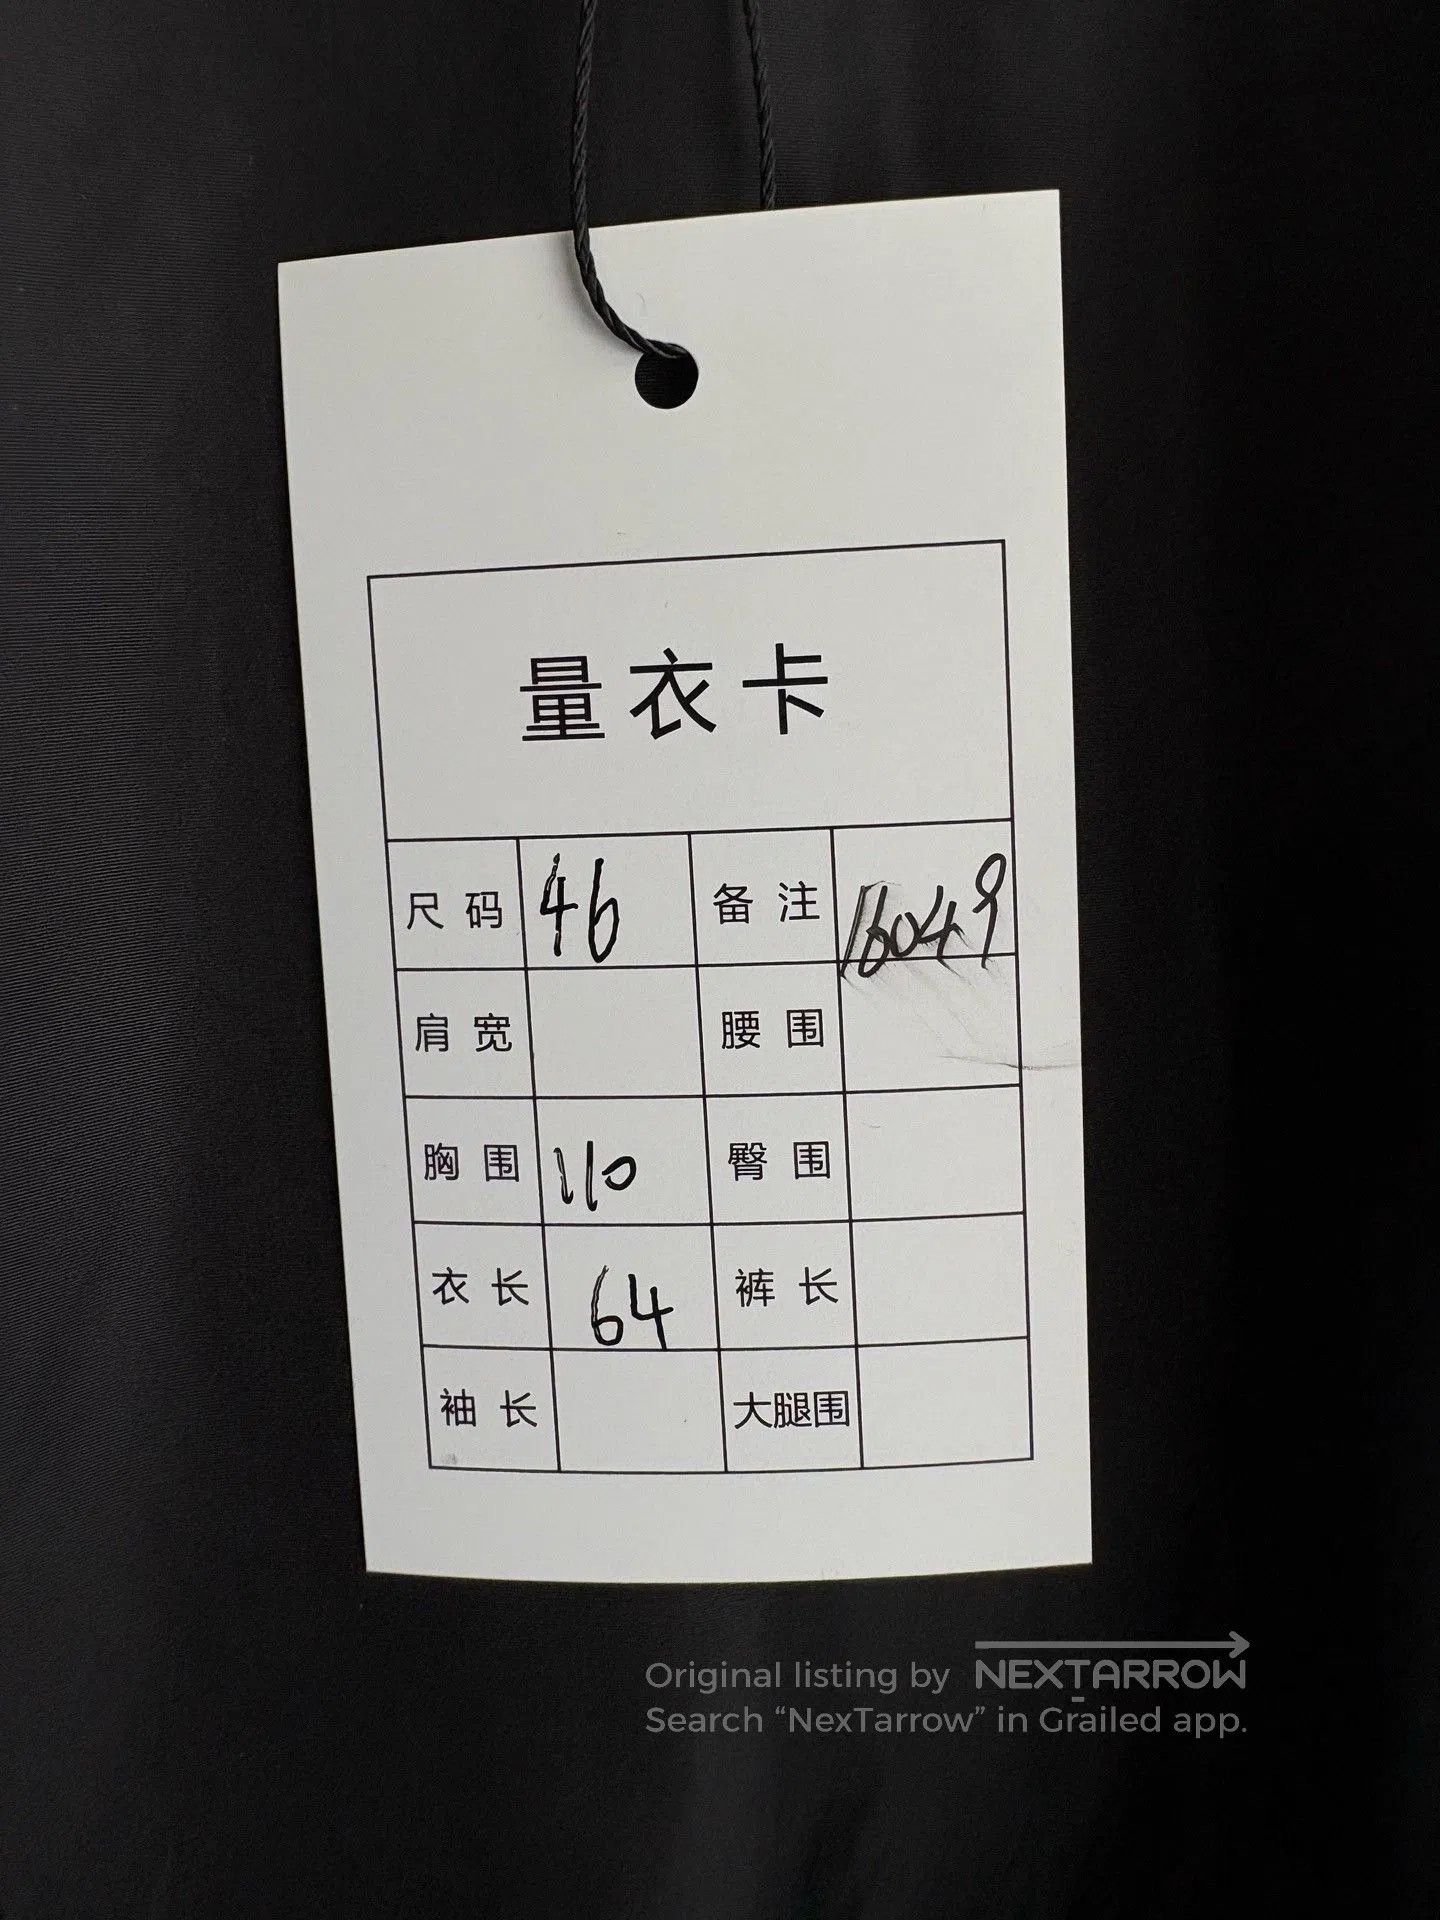 量衣卡
尺码 46 备注 16049
肩宽 腰围
胸围 110 臀围
衣长 64 裤长
袖长 大腿围
Original listing by NEXTARROW
Search “NexTarrow” in Grailed app.